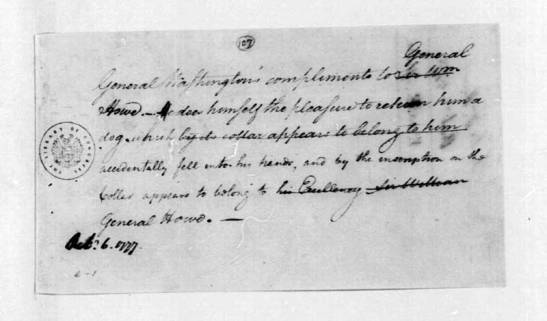 107
General
General Washington's compliments to Sir Wm
Howe. — does himself the pleasure to return him a
dog, which by its collar appears to belong to him
accidentally fell into his hands, and by the inscription on the
Collar appears to belong to his Excellency Sir William
General Howe. —
Octr. 6. 1777.
THE LIBRARY OF CONGRESS